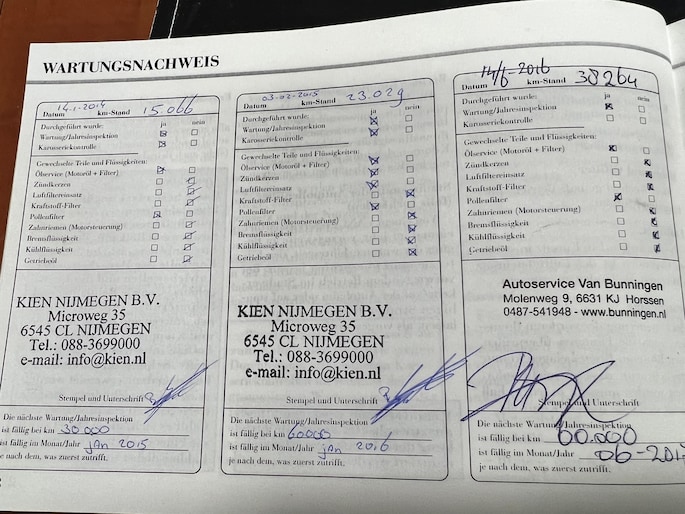 WARTUNGSNACHWEIS
Datum 14-1-2014 km-Stand 15.066
Durchgeführt wurde: ja nein
Wartung/Jahresinspektion
Karosseriekontrolle
Gewechselte Teile und Flüssigkeiten:
Ölservice (Motoröl + Filter)
Zündkerzen
Luftfiltereinsatz
Kraftstoff-Filter
Pollenfilter
Zahnriemen (Motorsteuerung)
Bremsflüssigkeit
Kühlflüssigkeit
Getriebeöl
KIEN NIJMEGEN B.V.
Microweg 35
6545 CL NIJMEGEN
Tel.: 088-3699000
e-mail: info@kien.nl
Stempel und Unterschrift
Die nächste Wartung/Jahresinspektion
ist fällig bei km 30.000
ist fällig im Monat/Jahr jan 2015
je nach dem, was zuerst zutrifft.
Datum 03-02-2015 km-Stand 23.029
Durchgeführt wurde: ja nein
Wartung/Jahresinspektion
Karosseriekontrolle
Gewechselte Teile und Flüssigkeiten:
Ölservice (Motoröl + Filter)
Zündkerzen
Luftfiltereinsatz
Kraftstoff-Filter
Pollenfilter
Zahnriemen (Motorsteuerung)
Bremsflüssigkeit
Kühlflüssigkeit
Getriebeöl
KIEN NIJMEGEN B.V.
Microweg 35
6545 CL NIJMEGEN
Tel.: 088-3699000
e-mail: info@kien.nl
Stempel und Unterschrift
Die nächste Wartung/Jahresinspektion
ist fällig bei km 60.000
ist fällig im Monat/Jahr jan 2016
je nach dem, was zuerst zutrifft.
Datum 14/6-2016 km-Stand 38264
Durchgeführt wurde: ja nein
Wartung/Jahresinspektion
Karosseriekontrolle
Gewechselte Teile und Flüssigkeiten:
Ölservice (Motoröl + Filter)
Zündkerzen
Luftfiltereinsatz
Kraftstoff-Filter
Pollenfilter
Zahnriemen (Motorsteuerung)
Bremsflüssigkeit
Kühlflüssigkeit
Getriebeöl
Autoservice Van Bunningen
Molenweg 9, 6631 KJ Horssen
0487-541948 - www.bunningen.nl
Stempel und Unterschrift
Die nächste Wartung/Jahresinspektion
ist fällig bei km 60.000
ist fällig im Monat/Jahr 06-201
je nach dem, was zuerst zutrifft.